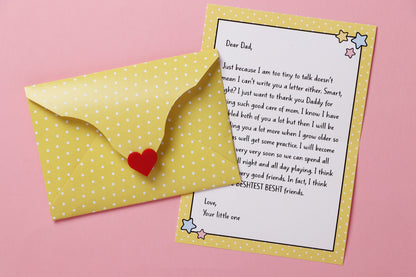 Dear Dad,
Just because I am too tiny to talk doesn't
mean I can't write you a letter either. Smart,
right? I just want to thank you Daddy for
ing such good care of mom. I know I have
bled both of you a lot but then I will be
ling you a lot more when I grow older so
well get some practice. I will become
very very soon so we can spend all
ll night and all day playing. I think
very good friends. In fact, I think
BESHTEST BESHT friends.
Love,
Your little one